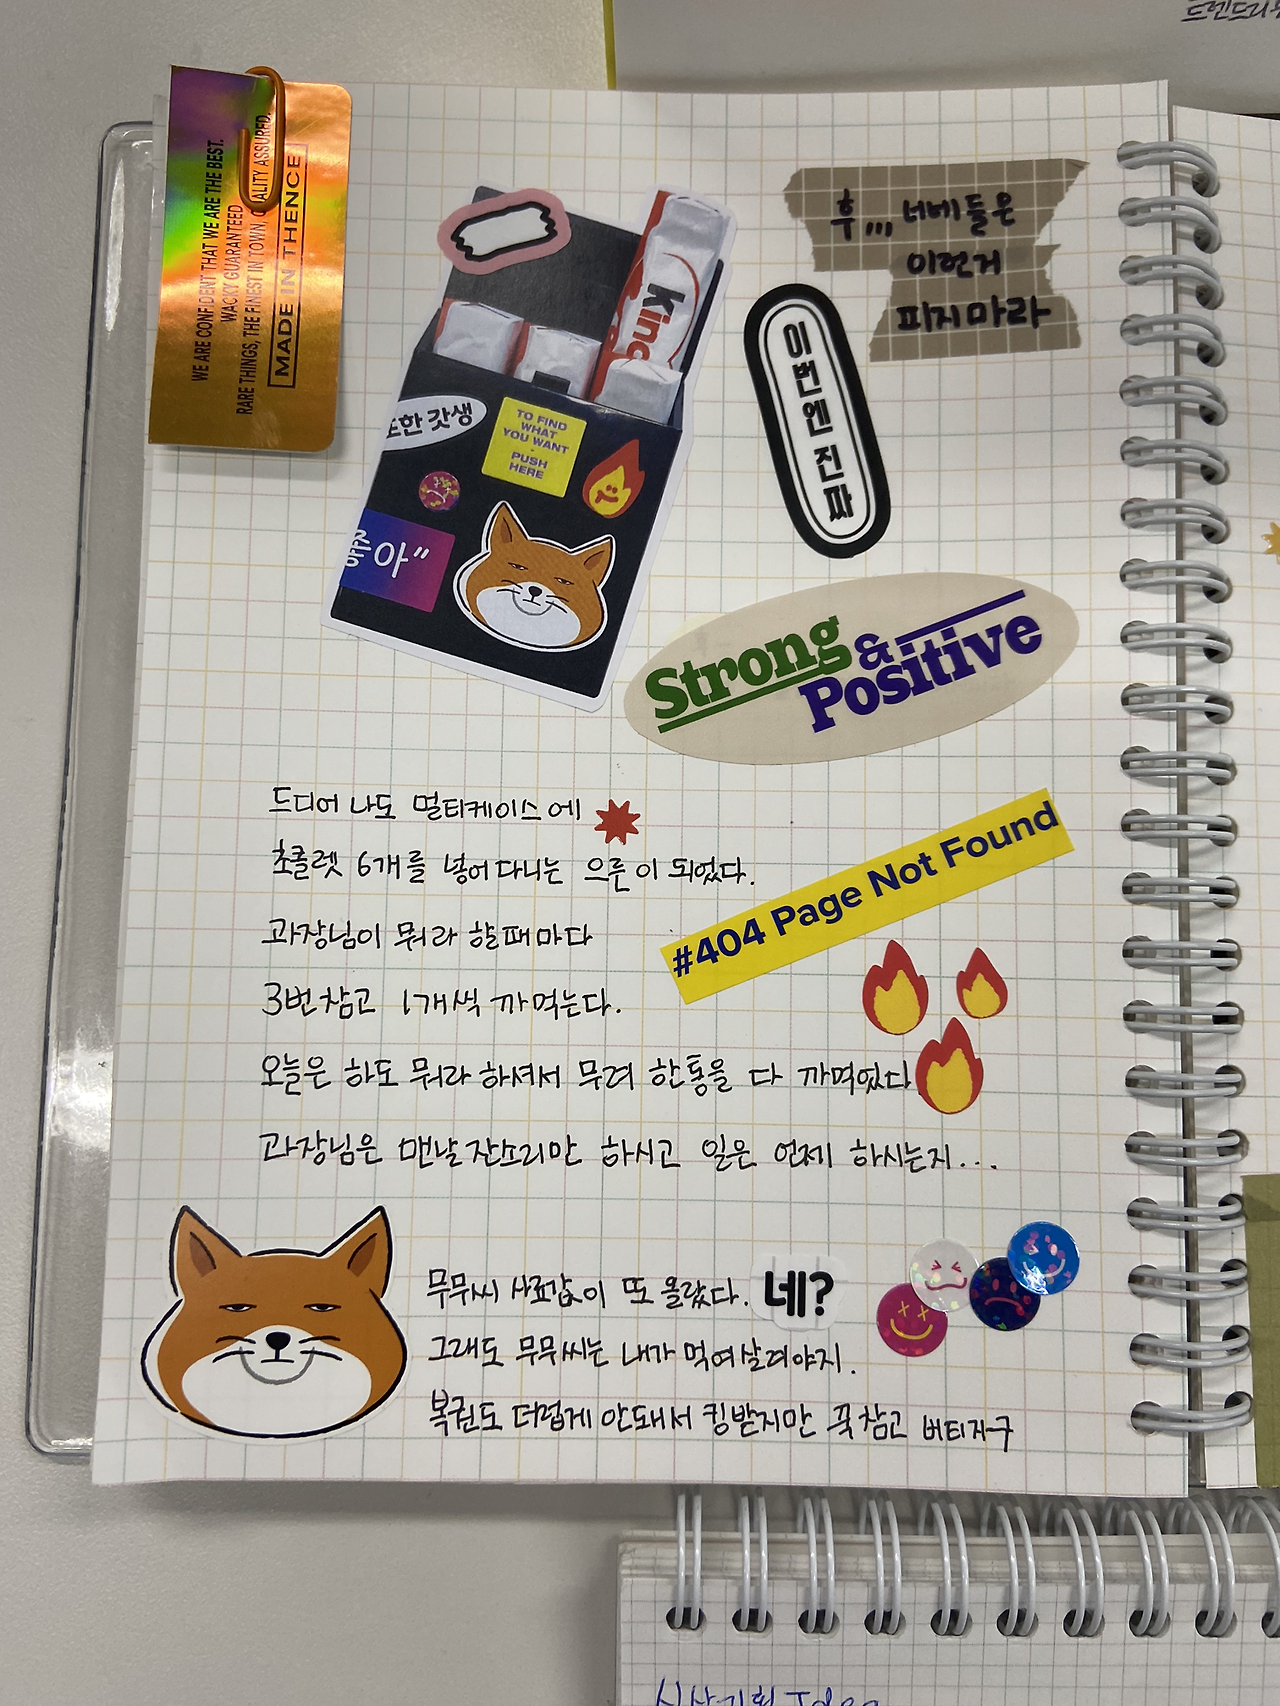 WE ARE CONFIDENT THAT WE ARE THE BEST.
WACKY GUARANTEED
RARE THINGS, THE FINEST IN TOWN, QUALITY ASSURED.
MADE IN THENCE
후,,, 너네들은
이런거
피지마라
이번엔 진짜
한 갓생
TO FIND
WHAT
YOU WANT
-
PUSH
HERE
좋아"
Strong &
Positive
드디어 나도 멀티케이스에
초콜렛 6개를 넣어다니는 으른이 되었다.
#404 Page Not Found
과장님이 뭐라 할때마다
3번참고 1개씩 까먹는다.
오늘은 하도 뭐라 하셔서 무려 한통을 다 까먹었다
과장님은 맨날 잔소리만 하시고 일은 언제 하시는지...
무무씨 사료값이 또 올랐다. 네?
그래도 무무씨는 내가 먹여살려야지.
복권도 더럽게 안돼서 킹받지만 꾹참고 버티자구